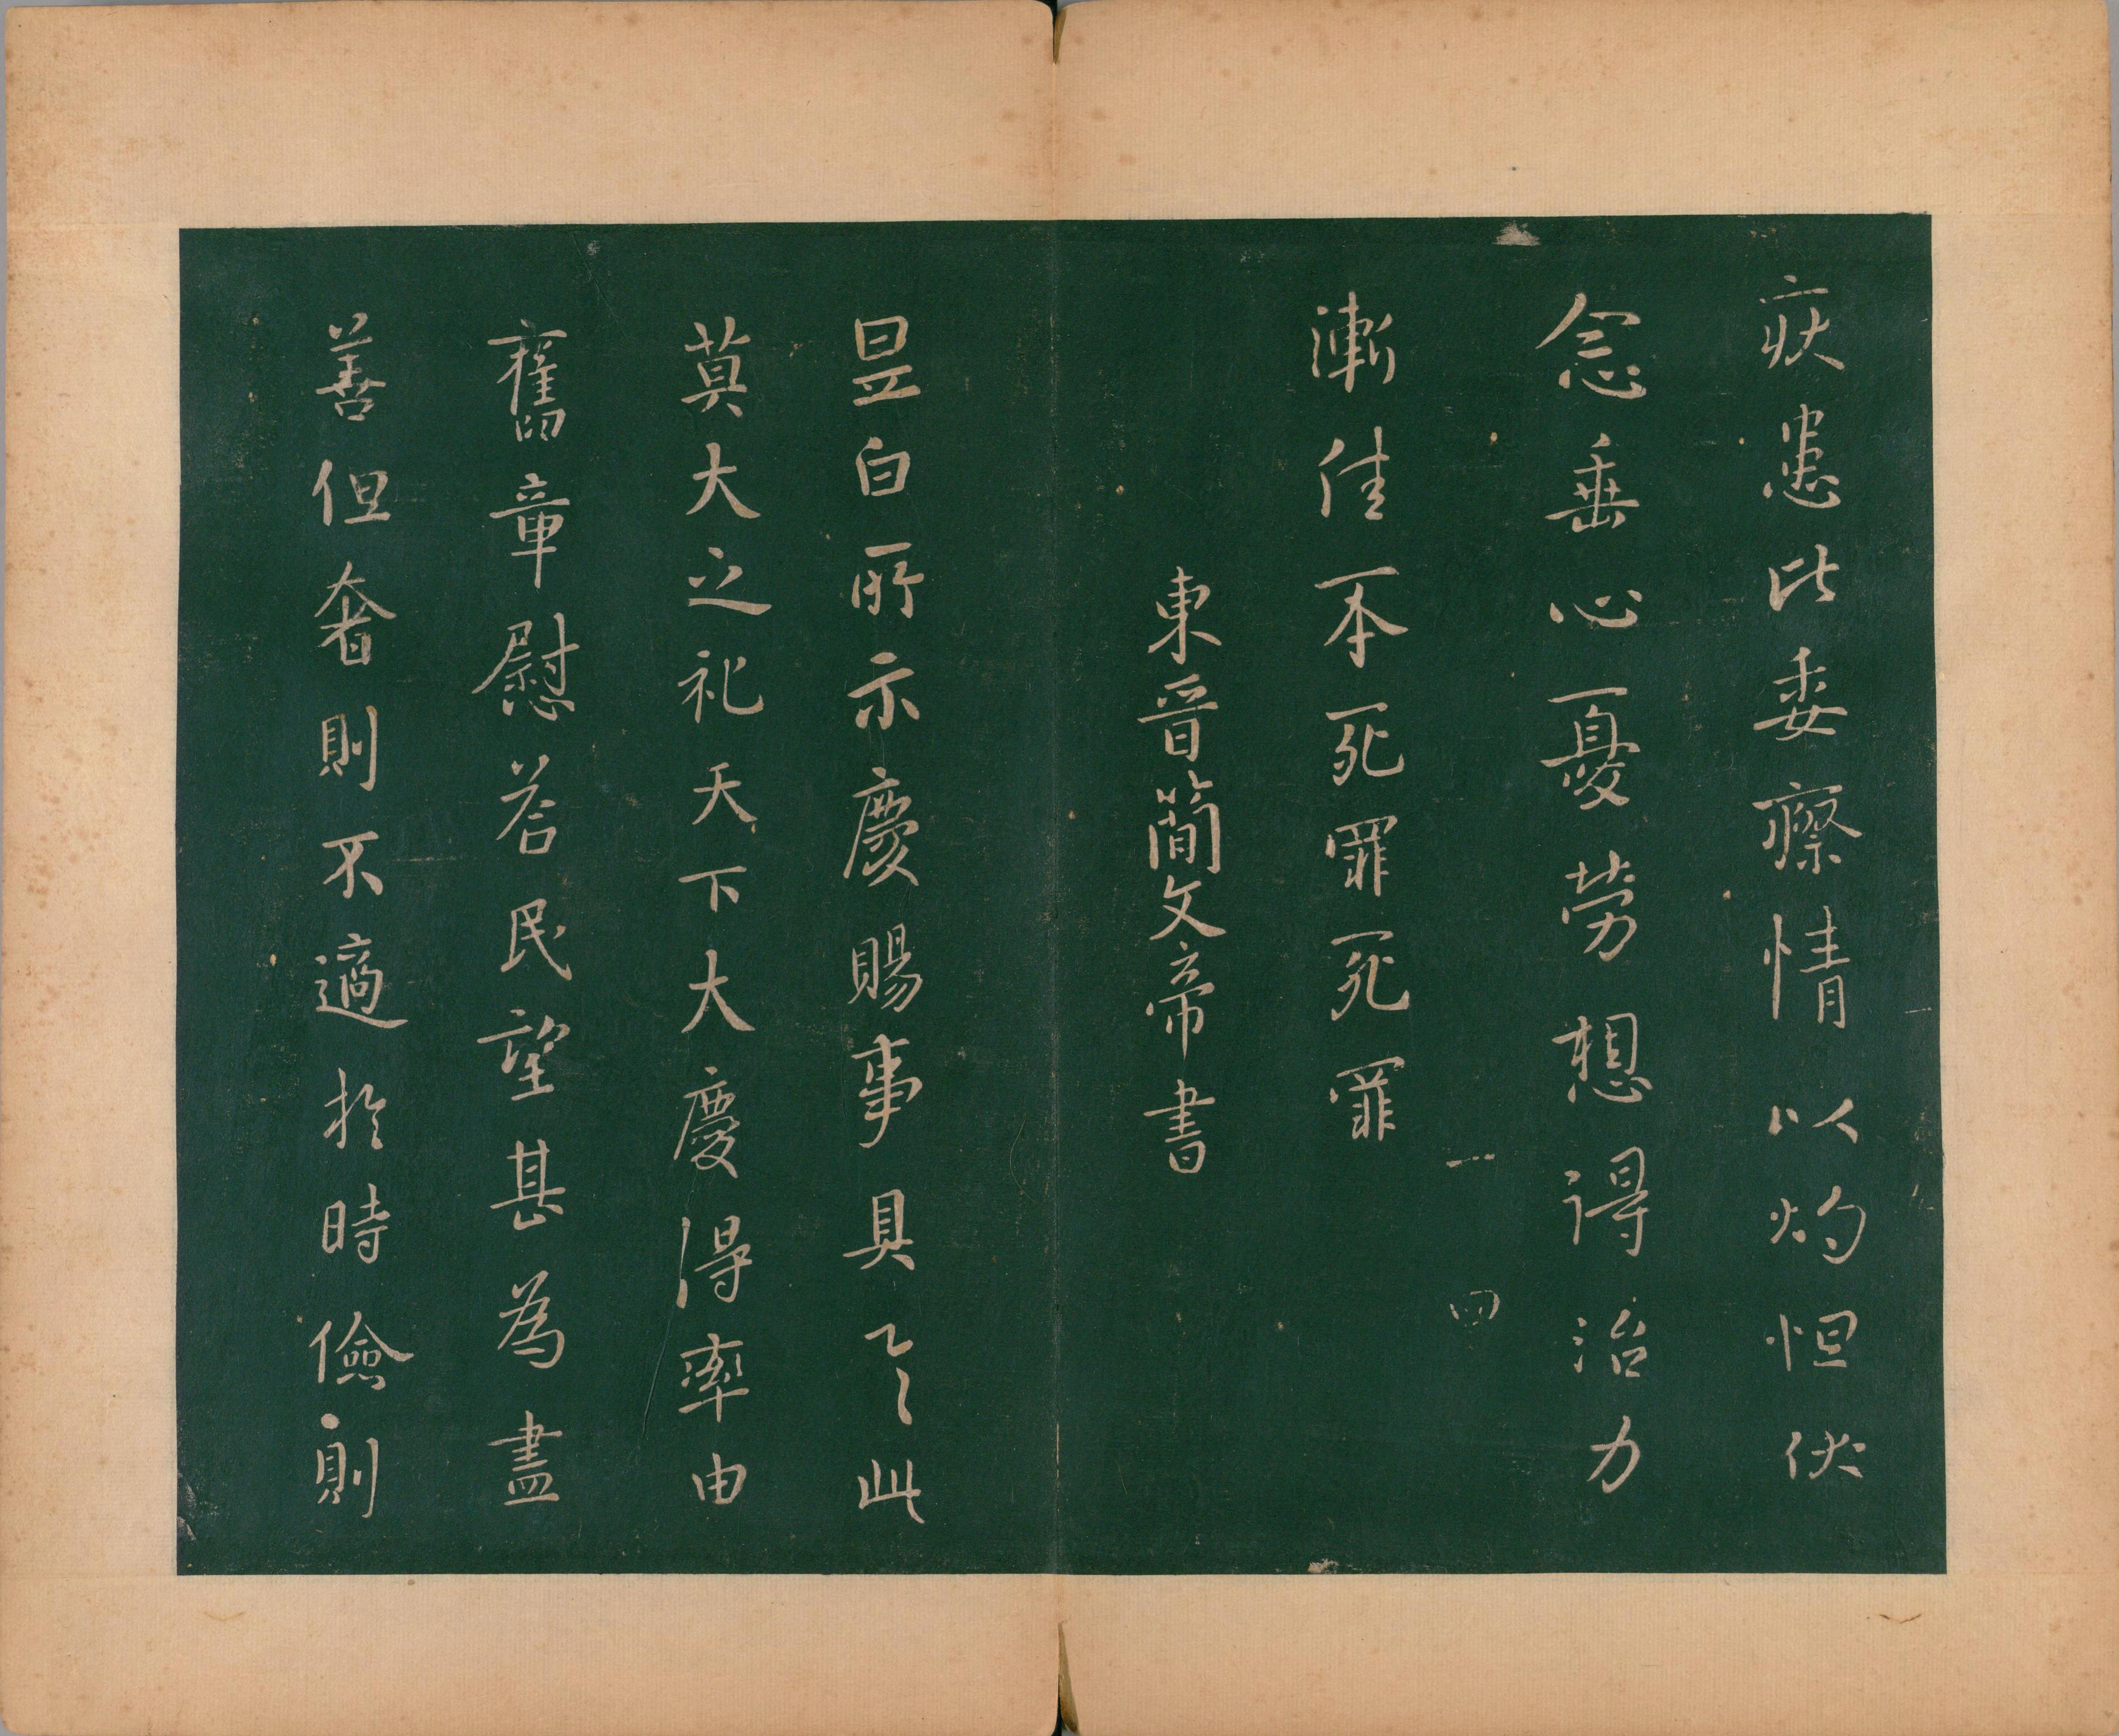 疾患比委瘵情以灼怛伏
念垂心憂勞想得治力
漸佳丕死罪死罪
一 四
東晉簡文帝書
昱白所示慶賜事具云云此
莫大之祀天下大慶得率由
舊章慰荅民望甚為盡
善但奢則不適於時儉則